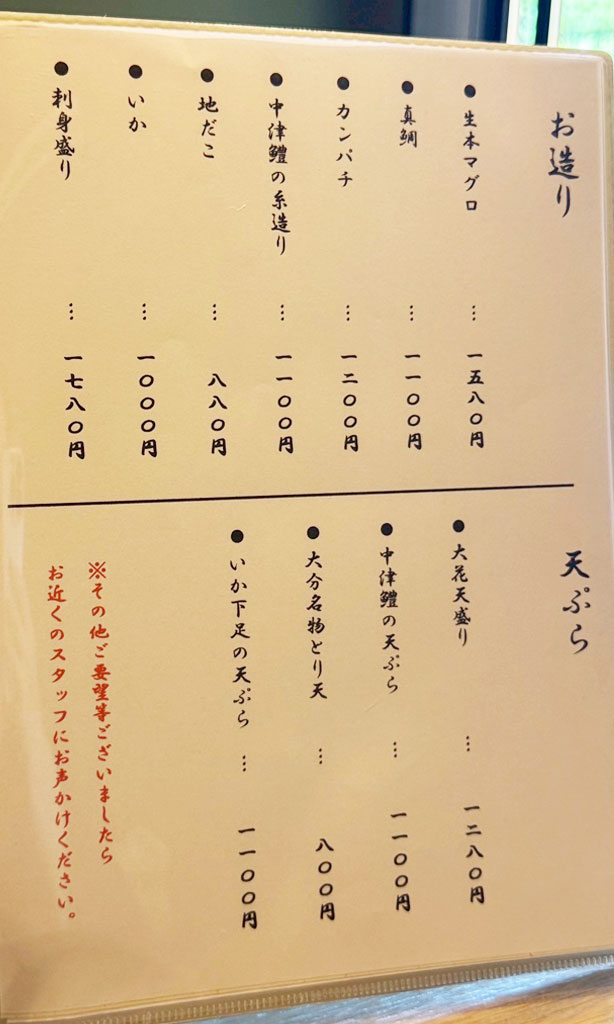 お造り
●生本マグロ … 一五八〇円
●真鯛 … 一一〇〇円
●カンパチ … 一二〇〇円
●中津鱧の糸造り … 一一〇〇円
●地だこ … 八八〇円
●いか … 一〇〇〇円
●刺身盛り … 一七八〇円
天ぷら
●大花天盛り … 一二八〇円
●中津鱧の天ぷら … 一一〇〇円
●大分名物とり天 … 八〇〇円
●いか下足の天ぷら … 一一〇〇円
※その他ご要望等ございましたら
お近くのスタッフにお声かけください。